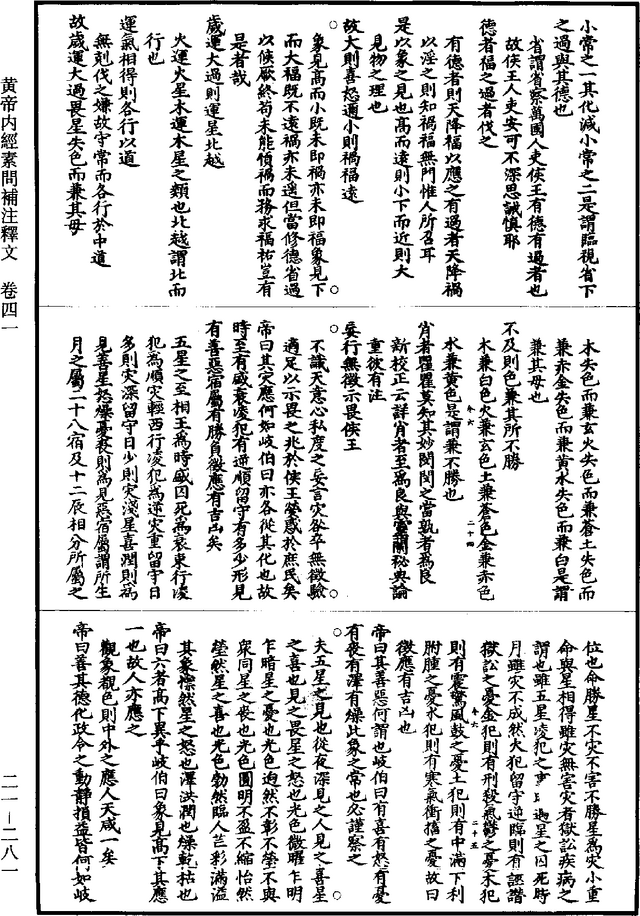 小常之一其化減小常之二是謂臨視省下
之過與其德也
省謂省察萬國人吏侯王有德有過者也
故侯王人吏安可不深思誡慎耶
德者福之過者伐之
有德者則天降福以應之有過者天降禍
以淫之則知禍福無門惟人所召耳
是以象之見也高而遠則小下而近則大
見物之理也
故大則喜怒邇小則禍福遠
象見高而小既未即禍亦未即福象見下
而大福既不遠禍亦未邇但當修德省過
以候厥終苟未能慎禍而務求福祐豈有
是者哉
歲運太過則運星北越
火運火星木運木星之類也北越謂北而
行也
運氣相得則各行以道
無剋伐之嫌故守常而各行於中道
故歲運太過畏星失色而兼其母
木失色而兼玄火失色而兼蒼土失色而
兼赤金失色而兼黃水失色而兼白是謂
兼其母也
不及則色兼其所不勝
木兼白色火兼玄色土兼蒼色金兼赤色
水兼黃色是謂兼不勝也
肖者瞿瞿莫知其妙閔閔之當孰者爲良
新校正云詳肖者至爲良與靈蘭秘典論
重彼有注
妄行無徵示畏侯王
不識天意心私度之妄言災咎卒無徵驗
適足以示畏之兆於侯王熒惑於庶民矣
帝曰其災應何如岐伯曰亦各從其化也故
時至有盛衰淩犯有逆順留守有多少形見
有善惡宿屬有勝負徵應有吉凶矣
五星之至相王爲時盛囚死爲衰東行淩
犯爲順災輕西行淩犯爲逆災重留守日
多則災深留守日少則災淺星喜潤則爲
見善星怒燥憂喪則爲見惡宿屬謂所生
月之屬二十八宿及十二辰相分所屬之
位也命勝星不災不害不勝星爲災小重
命與星相得雖災無害災者獄訟疾病之
謂也雖五星淩犯之事遇星之囚死時
月雖災不成然火犯留守逆臨則有誣譖
獄訟之憂金犯則有刑殺氣鬱之憂木犯
則有震驚風鼓之憂土犯則有中滿下利
胕腫之憂水犯則有寒氣衝稸之憂故曰
徵應有吉凶也
帝曰其善惡何謂也岐伯曰有喜有怒有憂
有喪有澤有燥此象之常也必謹察之
夫五星之見也從夜深見之人見之喜星
之喜也見之畏星之怒也光色微曜乍明
乍暗星之憂也光色迥然不彰不瑩不與
衆同星之喪也光色圓明不盈不縮怡然
瑩然星之喜也光色勃然臨人芒彩滿溢
其象懍然星之怒也澤洪潤也燥乾枯也
帝曰六者高下異乎岐伯曰象見高下其應
一也故人亦應之
觀象覩色則中外之應人天咸一矣
帝曰善其德化政令之動靜損益皆何如岐
黄帝内經素問補注釋文　卷四一
二一—二八一